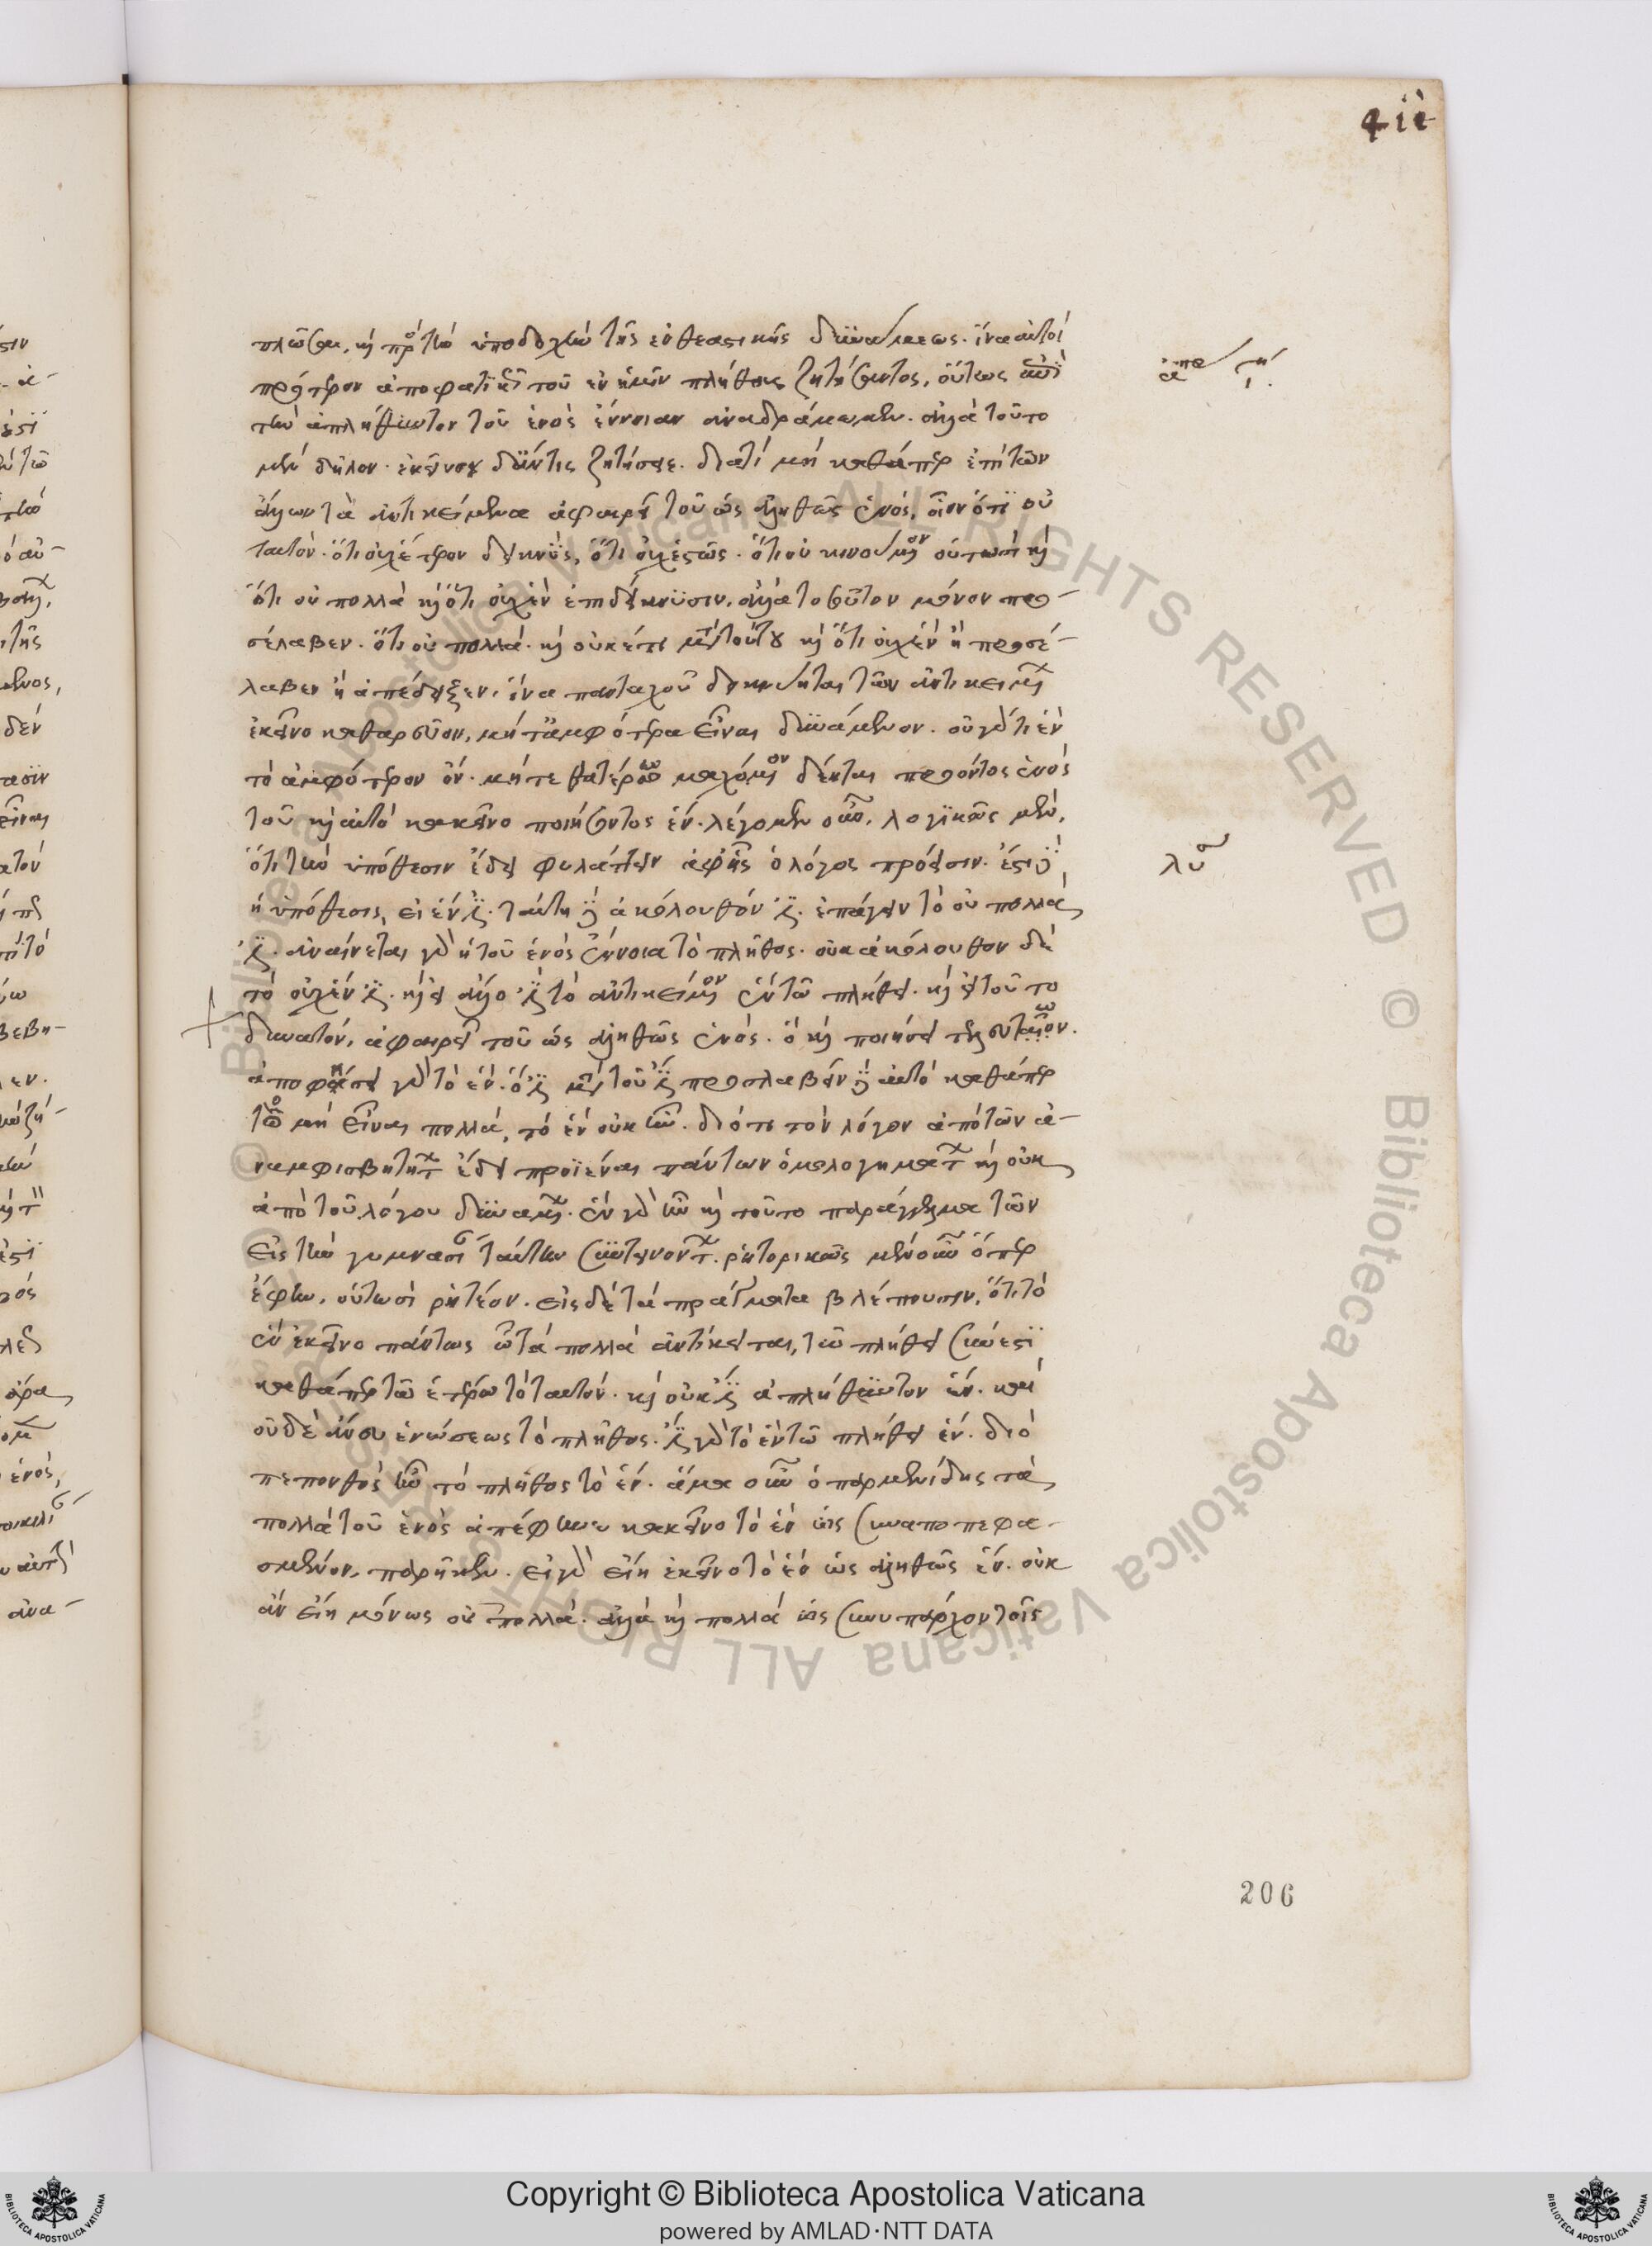 πλῶσαι, καὶ πρὸς τὴν ὑποδοχὴν τῆς ἐνθεαστικῆς δυνάμεως. ἵνα αὐτοὶ
πρότερον ἀποφατικοὶ τοῦ ἐν ἡμῖν πλήθους οὕτως
τὴν ἀπλήθυντον τοῦ ἑνὸς ἔννοιαν ἀναδράμωμεν. ἀλλὰ τοῦτο
μὲν δῆλον. ἐκεῖνο δ' ἄν τις ζητήσειε. διατί μὴ καθάπερ ἐπὶ τῶν
ἄλλων τὰ ἀντικείμενα ἀφαιρεῖ τοῦ ὡς ἀληθῶς ἑνός, οἷον ὅτι οὐ
ταὐτόν. ὅτι οὐχ ἕτερον δεικνύς, ὅτι οὐχ ἑστώς. ὅτι οὐ κινούμενον οὑτωσὶ καὶ
ὅτι οὐ πολλὰ καὶ ὅτι οὐχ ἓν ἐπιδείκνυσιν, ἀλλὰ τοσοῦτον μόνον προ-
σέλαβεν. ὅτι οὐ πολλά. καὶ οὐκέτι μετὰ τούτου καὶ ὅτι οὐχ ἓν ἢ προσέ-
λαβεν ἢ ἀπέδειξεν, ἵνα πανταχοῦ δεικνύηται τῶν ἀντικειμένων
ἐκεῖνο καθαρεῦον, μήτ' ἀμφότερα εἶναι δυνάμενον. οὐ γὰρ ἔτι ἓν
τὸ ἀμφότερον ὄν. μήτε θατέρῳ μαχόμενον δέηται πρὸ ὄντος ἑνὸς
τοῦ καὶ αὐτὸ κἀκεῖνο ποιήσοντος ἕν. λέγομεν οὖν, λογικῶς μὲν,
ὅτι τὴν ὑπόθεσιν ἔδει φυλάττειν ἀφ' ἧς ὁ λόγος πρόεισιν. ἔστι δὲ
ἡ ὑπόθεσις, εἰ ἕν ἐστι. ταύτῃ δὲ ἀκόλουθόν ἐστι. ἐπάγειν τὸ οὐ πολλά
ἐστι. ἀναίνεται γὰρ ἡ τοῦ ἑνὸς ἔννοια τὸ πλῆθος. οὐκ ἀκόλουθον δὲ
τὸ οὐχ ἕν ἐστι. καὶ εἰ ἄλλο ἐστὶ τὸ ἀντικείμενον ἓν τῷ πλήθει. καὶ εἰ τοῦτο
δυνατόν, ἀφαιρεῖν τοῦ ὡς ἀληθῶς ἑνός. ὃ καὶ ποιήσει
ἀποφήσει γὰρ τὸ ἕν. ὅ ἐστι μετὰ τοῦ ἔστι προσλαβεῖν δὲ αὐτὸ καθάπερ
τὸ μὴ εἶναι πολλά, τὸ ἓν οὐκ ἦν. διότι τὸν λόγον ἀπὸ τῶν ἀ-
ναμφισβητήτων ἔδει προϊέναι πάντων ὁμολογημάτων καὶ οὐκ
ἀπὸ τοῦ λόγου δυναμένων. ἓν γὰρ ἦν καὶ τοῦτο παράγγελμα τῶν
εἰς τὴν γυμνασίαν ταύτην συντεινόντων. ῥητορικῶς μὲν οὖν ὅπερ
ἔφην, οὑτωσὶ ῥητέον. εἰς δὲ τὰ πράγματα βλέπουσιν, ὅτι τὸ
ἓν ἐκεῖνο πάντως ᾧ τὰ πολλὰ ἀντίκειται, τῷ πλήθει σύνεστι
καθάπερ τῷ ἑτέρῳ τὸ ταὐτόν. καὶ οὐκ ἔστιν ἀπλήθυντον ἕν. καὶ
οὐδὲ ἄνευ ἑνώσεως τὸ πλῆθος. ἔστι γὰρ τὸ ἐν τῷ πλήθει ἕν. διὸ
πεπονθὸς ἦν τὸ πλῆθος τὸ ἕν. ἅμα οὖν ὁ παρμενίδης τὰ
πολλὰ τοῦ ἑνὸς ἀπέφησε κἀκεῖνο τὸ ἓν ὡς συναποπεφα-
σμένον, παρῆκεν. εἰ γὰρ εἴη ἐκεῖνο τὸ ἓν ὡς ἀληθῶς ἕν. οὐκ
ἂν εἴη μόνως οὐ πολλά. ἀλλὰ καὶ πολλὰ ὡς συνυπάρχον τοῖς
λύσις
206
© Biblioteca Apostolica Vaticana ALL RIGHTS RESERVED
Copyright © Biblioteca Apostolica Vaticana
powered by AMLAD·NTT DATA